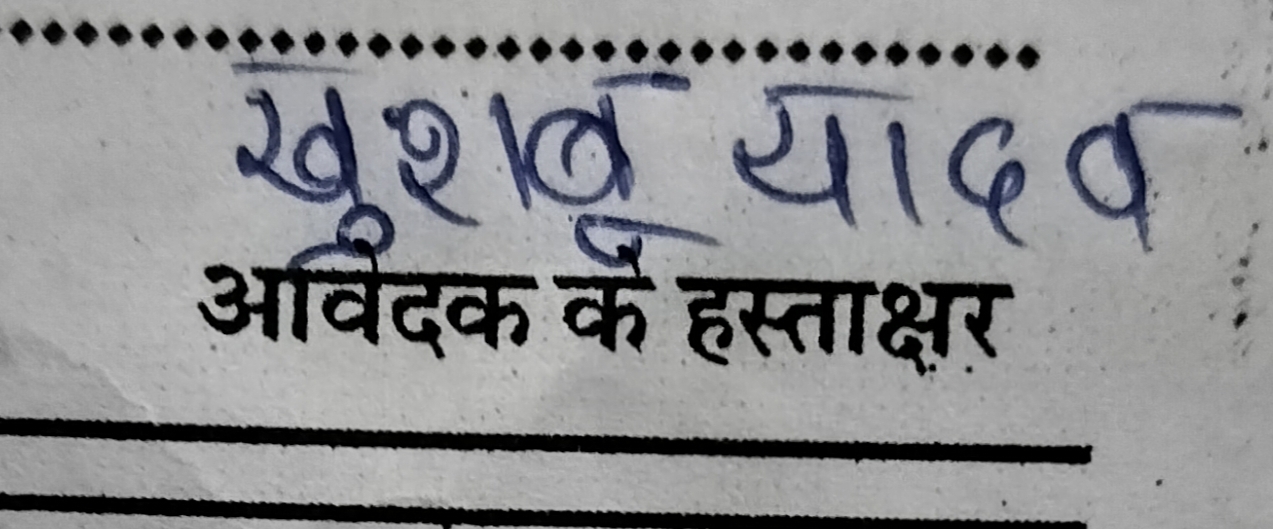 खुशबू यादव
आवेदक के हस्ताक्षर